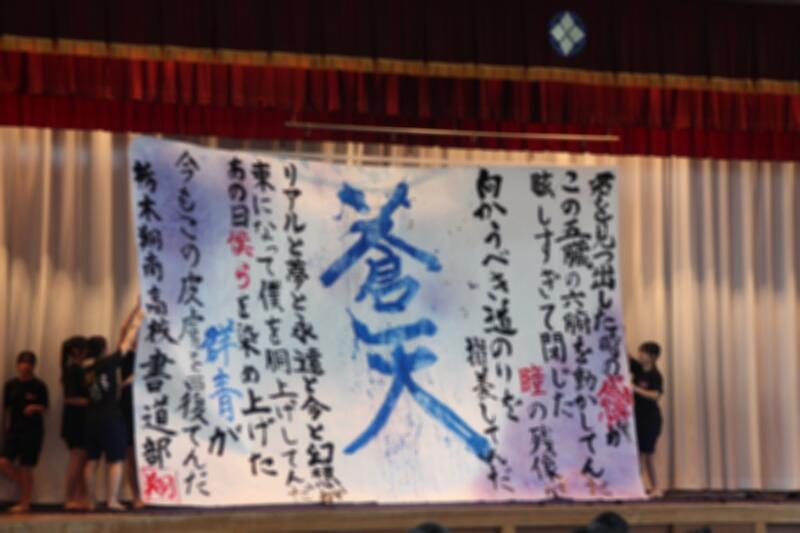 君を見つ出した時の感情が
この五臓の六腑を動かしてんだ
眩しすぎて閉じた
瞳の残像が
向かうべき道のりを
樹養してんだ
蒼天
リアルと夢と永遠と今と幻想と
束になって僕を胴上げしてんだ
あの日僕らを染め上げた
群青が
今もこの皮膚を巡ってんだ
栃木翔南高校書道部
翔